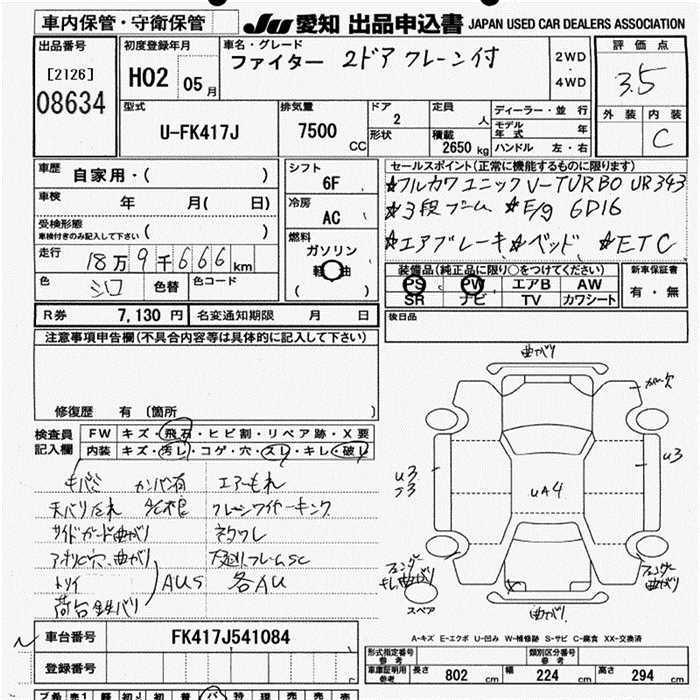 車内保管・守衛保管
JU 愛知 出品申込書 JAPAN USED CAR DEALERS ASSOCIATION
出品番号
[2126]
08634
初度登録年月
H02 05月
車名・グレード
ファイター 2ドア クレーン付
2WD
・
4WD
評価点
3.5
外装 内装
C
型式
U-FK417J
排気量
7500 CC
ドア
2
形状
定員
人
積載
2650 kg
ディーラー・並行
モデル年式 年
ハンドル 左・右
車歴 自家用・( )
車検 年 月( 日)
受検形態
車検付きのみ記入して下さい ( )
走行
18万9千666km
色 シロ 色替 色コード
シフト
6F
冷房
AC
燃料
ガソリン
軽油
( )
セールスポイント(正常に機能するものに限ります)
☆フルカワユニック V-TURBO UR343
☆3段ブーム ☆E/g 6D16
☆エアブレーキ ☆ベッド ☆ETC
装備品(純正品に限り○をつけてください)
PS PW エアB AW
SR ナビ TV カワシート
新車保証書
有・無
R券 7,130円 名変通知期限 月 日
後日品
注意事項申告欄(不具合内容等は具体的に記入して下さい)
修復歴 有 〔箇所 〕
検査員
記入欄
FW キズ・飛石・ヒビ割・リペア跡・X要
内装 キズ・汚レ・コゲ・穴・スレ・キレ・破レ
キバミ カンバン有 エアーもれ
天バリたれ クレーンワイヤーキング
サイドガード曲がり ネクワレ
アオリC穴、曲がり フレームSC
トソイ AUS 各AU
荷台鉄バリ
曲がり
カバー欠
U3
U3
UA4
フェンダー
曲がり
フェンダー
曲がり
曲がり
スペア
A-キズ E-エクボ U-凹み W-補修跡 S-サビ C-腐食 XX-交換済
車台番号 FK417J541084
登録番号
形式指定番号
参考
類別区分番号
参考
車庫証明用
参考
長さ 802 cm 幅 224 cm 高さ 294 cm